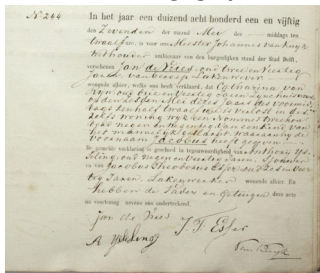 No 244
In het jaar een duizend acht honderd een en vijftig
den Zevenden der maand Mei des middags ten
twaalf ure, is voor ons Meester Johannes van Kuyk
Wethouder ambtenaar van den burgerlijken stand der Stad Delft,
verschenen Jan de Vries oud twee en Veertig
Jaren, van beroep Lakenwever
wonende alhier, welke ons heeft verklaard, dat Catharina van
Rijn oud drie en Veertig Jaren zijne huisvrouw
op den zesden Mei dezes Jaars des voormid
dags ten half twaalf ure is verlost in des
zelfs woning wijk een nommer twee hon
derd negen en negentig van een kind van
het mannelijk geslacht waaraan hij de
voornaam Jacobus heeft gegeven
De gemelde verklaring is geschied in tegenwoordigheid van Anthony IJs
seling oud negen en Veertig Jaren,
en Jacobus Theodorus Esser oud
Jaren Lakenwerker wonende alhier. En
hebben de Vader en Getuigen deze acte
na voorlezing nevens ons onderteekend.
Jan de Vries
A IJsseling J T Esser
Van Kuyk